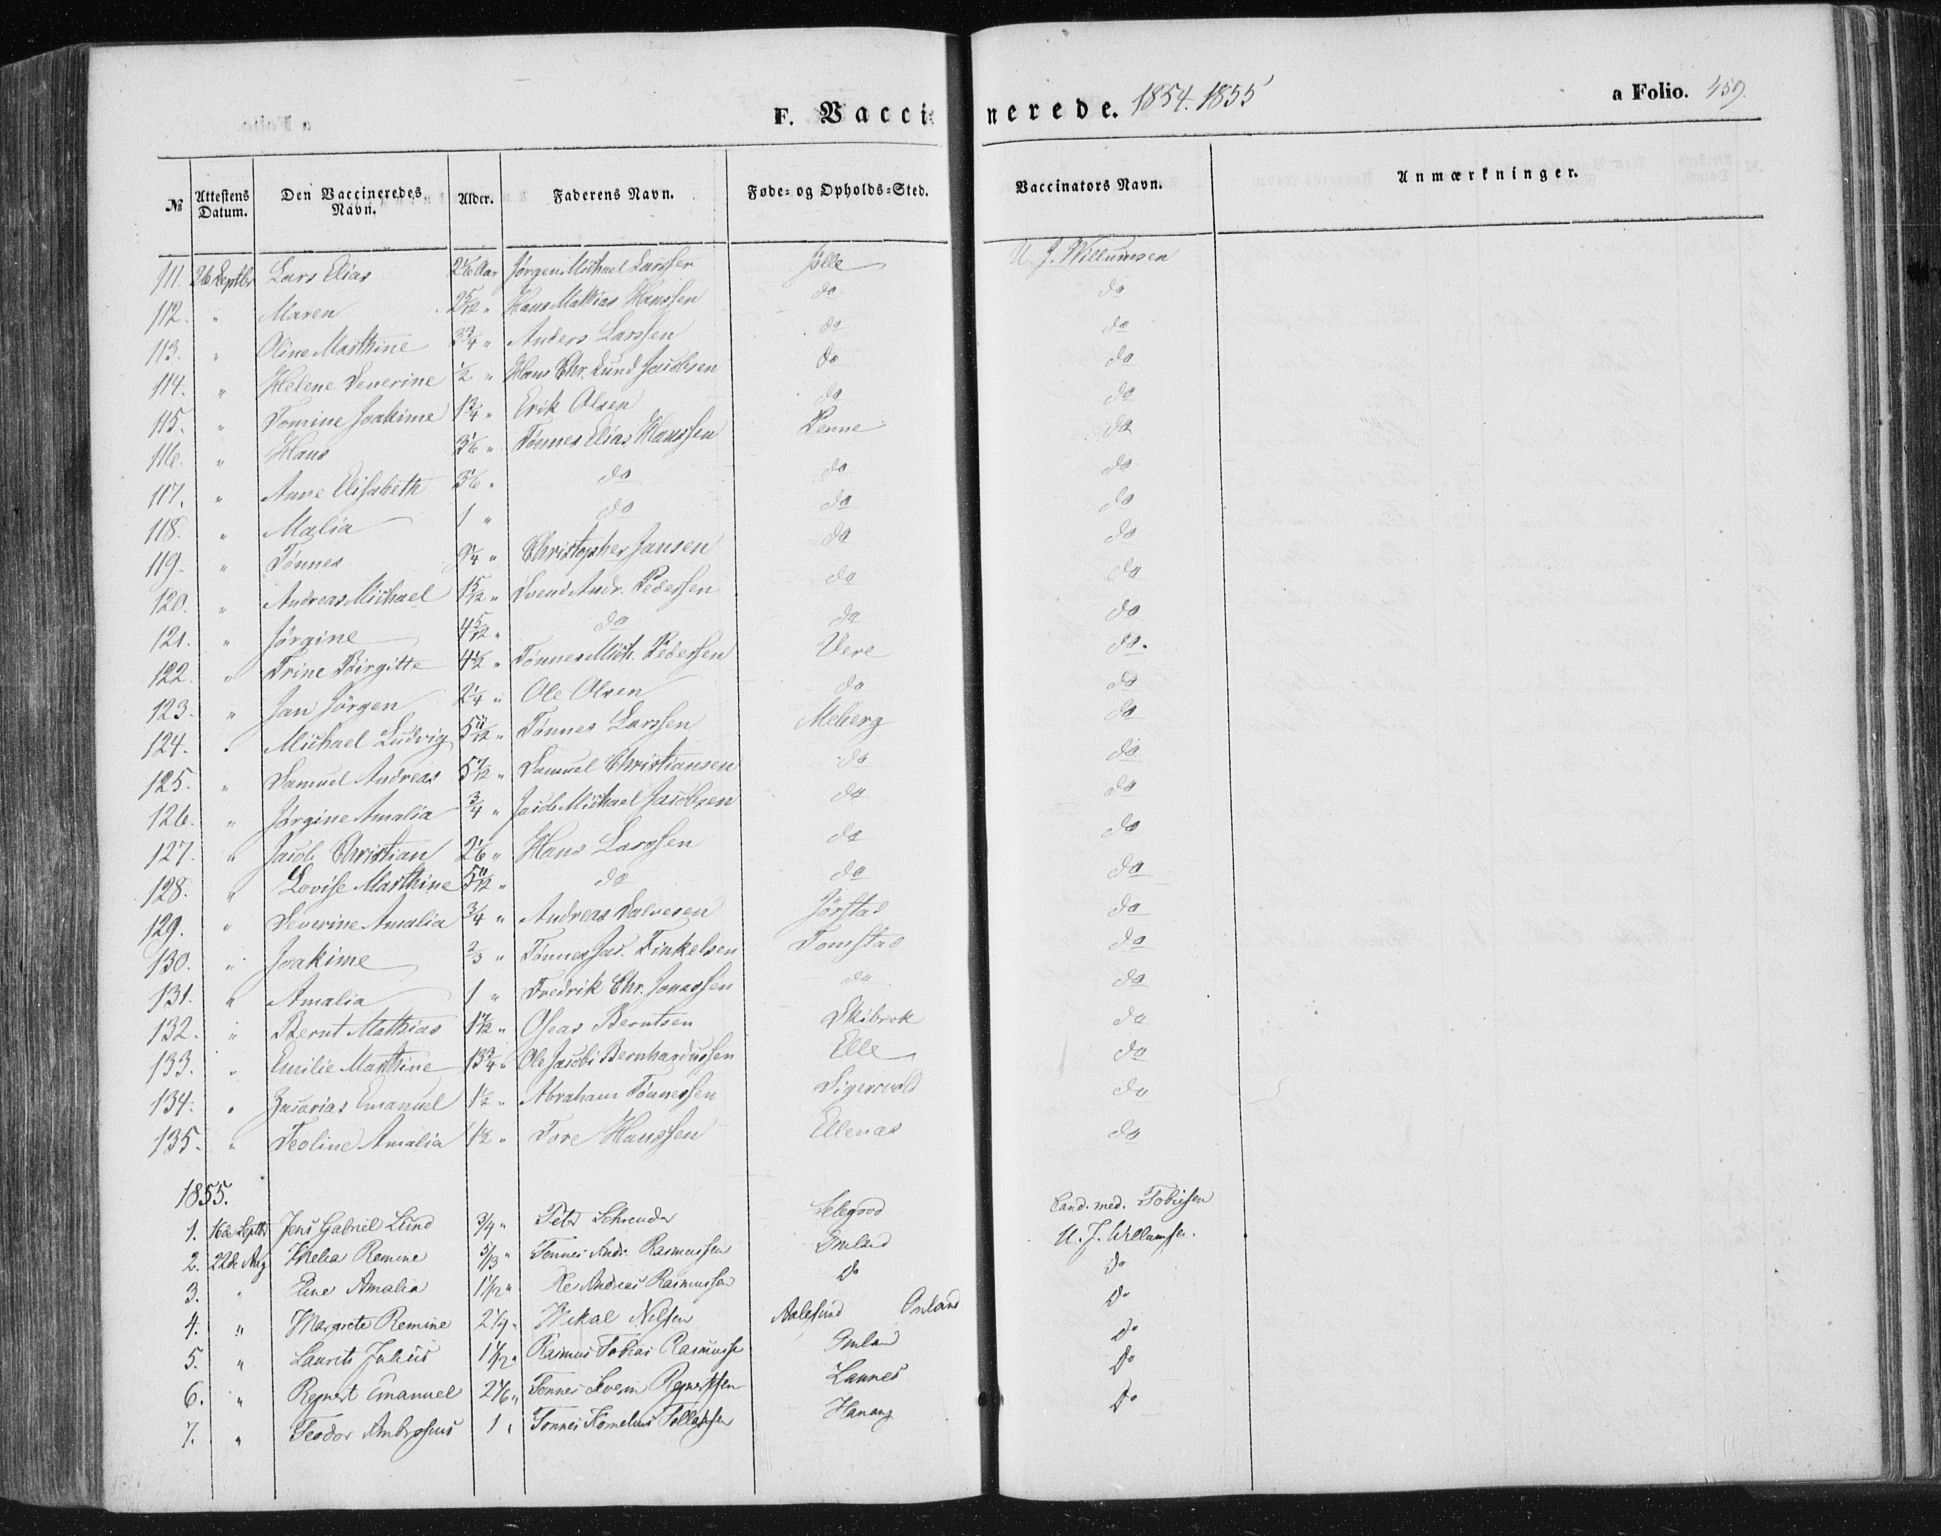 F. Vaccinerede. 1854. 1855
a Folio. 459.
№ Attestens Datum. Den Vaccineredes Navn. Alder. Faderens Navn. Føde- og Opholds-Sted. Vaccinators Navn. Anmærkninger.
111. 26 Septbr Lars Elias 2 1/6 Aar Jørgen Michael Larssen Jølle U. J. Willumsen
112. " Maren 2 5/12 " Hans Mathias Hanssen do do
113. " Oline Marthine 3 3/4 " Anders Larssen do do
114. " Helene Severine 1/2 " Hans Chr. Lund Jacobsen do do
115. " Tomine Joakime 1 3/4 " Erik Olsen do do
116. " Hans 3 1/6 " Tønnes Elias Hanssen Penne do
117. " Anne Elisabeth 5/6 " do do do
118. " Malia 1 " do do do
119. " Tønnes Christopher Jansen do do
120. " Andreas Michael 1 5/12 " Svend Andr. Pedersen do do
121. " Jørgine 4 5/12 " do do do
122. " Trine Birgitte 4 1/2 " Tønnes Mich. Pedersen Vere do.
123. " Jan Jørgen 2 1/4 " Ole Olsen do do
124. " Michael Ludvig 5 11/12 " Tønnes Larssen Meberg do
125. " Samuel Andreas 5 7/12 " Samuel Christiansen do do
126. " Jørgine Amalia 3/4 " Jacob Michael Jacobsen do do
127. " Jacob Christian 2 1/6 " Hans Larssen do do
128. " Lovise Marthine 5 11/12 " do do do
129. " Severine Amalia 3/4 " Andreas Salvesen Jørstad do
130. " Joakime 2/3 " Tønnes Jac. Tinkelsen Tomstad do
131. " Amalia 1 " Fredrik Chr. Jonassen do do
132. " Bernt Mathias 1 7/12 " Oseas Berntsen Skibrok do
133. " Emilie Marthine 13 3/4 " Ole Jacobi Bernhardussen Elle do
134. " Zacarias Emanuel 1 1/2 " Abraham Tønnessen Sigersvold do
135. " Teoline Amalia 1 1/2 " Tore Hanssen Ellenas do
1855.
1. 16de Septbr Jens Gabriel Lund 3/4 " Peter Schreuder Cand. med. Tobiesen
2. 22de Aug Remine Tønnes Andr. Rasmussen Omland U. J. Willumsen.
3. " Amalia 1 1/12 " Andreas Rasmussen Do Do
4. " Margrete Remine 2 1/4 " Mikal Nilsen Aalesund Omland Do
5. " Laurits Julius 1 1/12 " Rasmus Tobias Rasmussen Omland Do
6. " Regnert Emanuel 2 1/6 " Tønnes Severin Regnertsen Launes Do
7. " Teodor Ambrosius 1 " Tønnes Kornelius Tollagsen Hanang Do